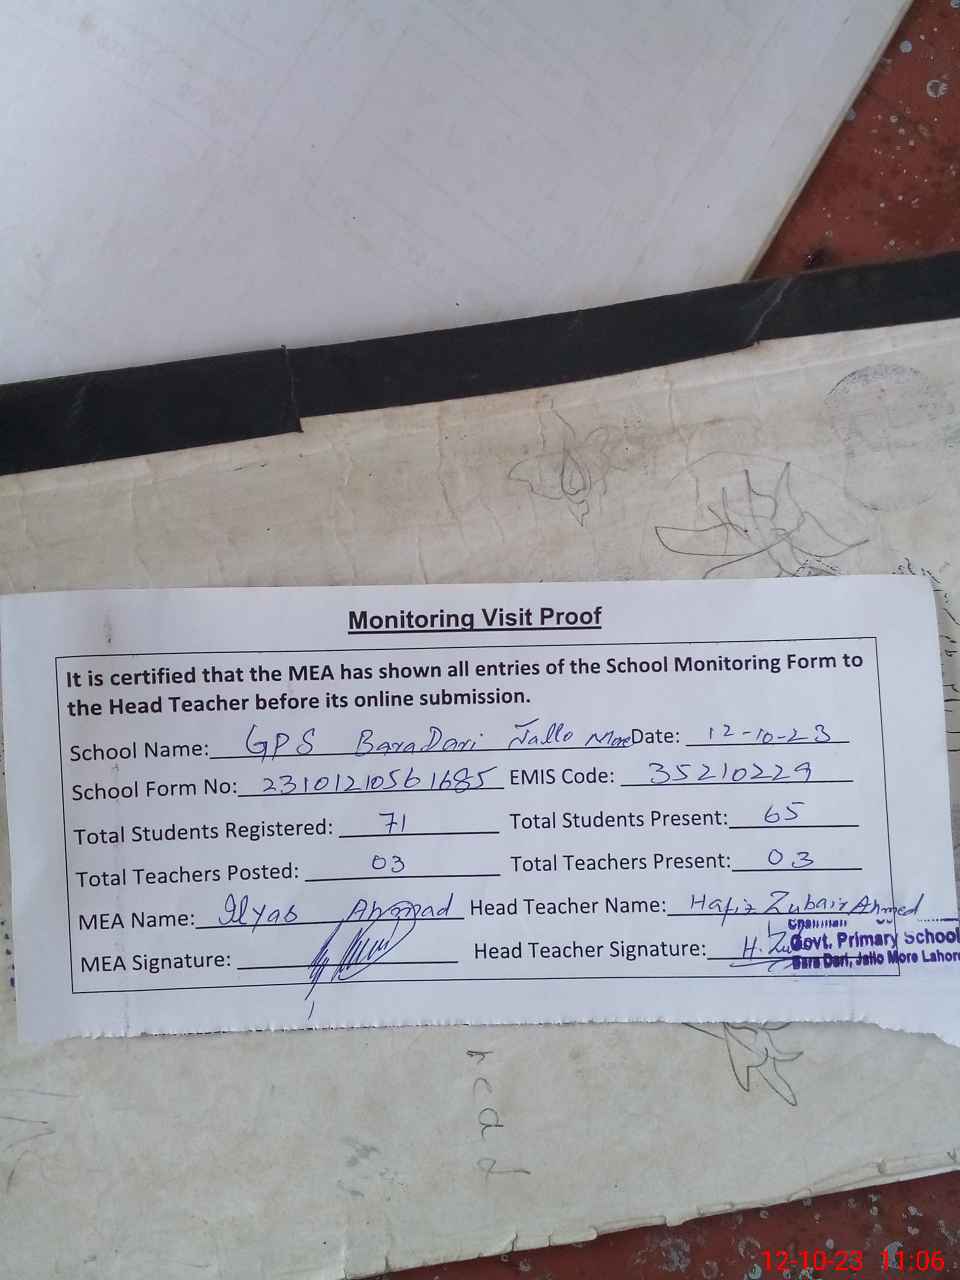 Monitoring Visit Proof
It is certified that the MEA has shown all entries of the School Monitoring Form to
the Head Teacher before its online submission.
School Name: GPS BaraDari Jallo More Date: 12-10-23
School Form No: 23101210561685 EMIS Code: 35210229
Total Students Registered: 71 Total Students Present: 65
Total Teachers Posted: 03 Total Teachers Present: 03
MEA Name: Ilyas Ahmad Head Teacher Name: Hafiz Zubair Ahmed
MEA Signature: Head Teacher Signature: H. Zu
Govt. Primary School
Bara Dari, Jallo More Lahore
12-10-23 11:06